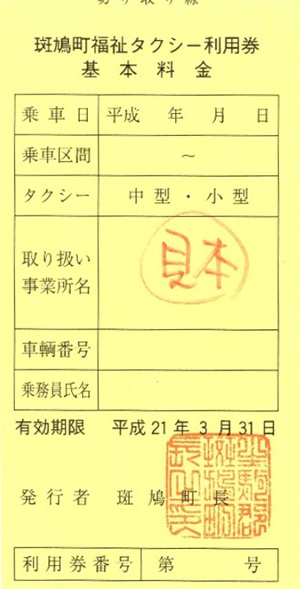 切り取り線
斑鳩町福祉タクシー利用券
基本料金
乗車日 平成 年 月 日
乗車区間 ～
タクシー 中型・小型
取り扱い
事業所名
見本
車輌番号
乗務員氏名
有効期限 平成21年3月31日
発行者 斑鳩町長
利用券番号 第 号